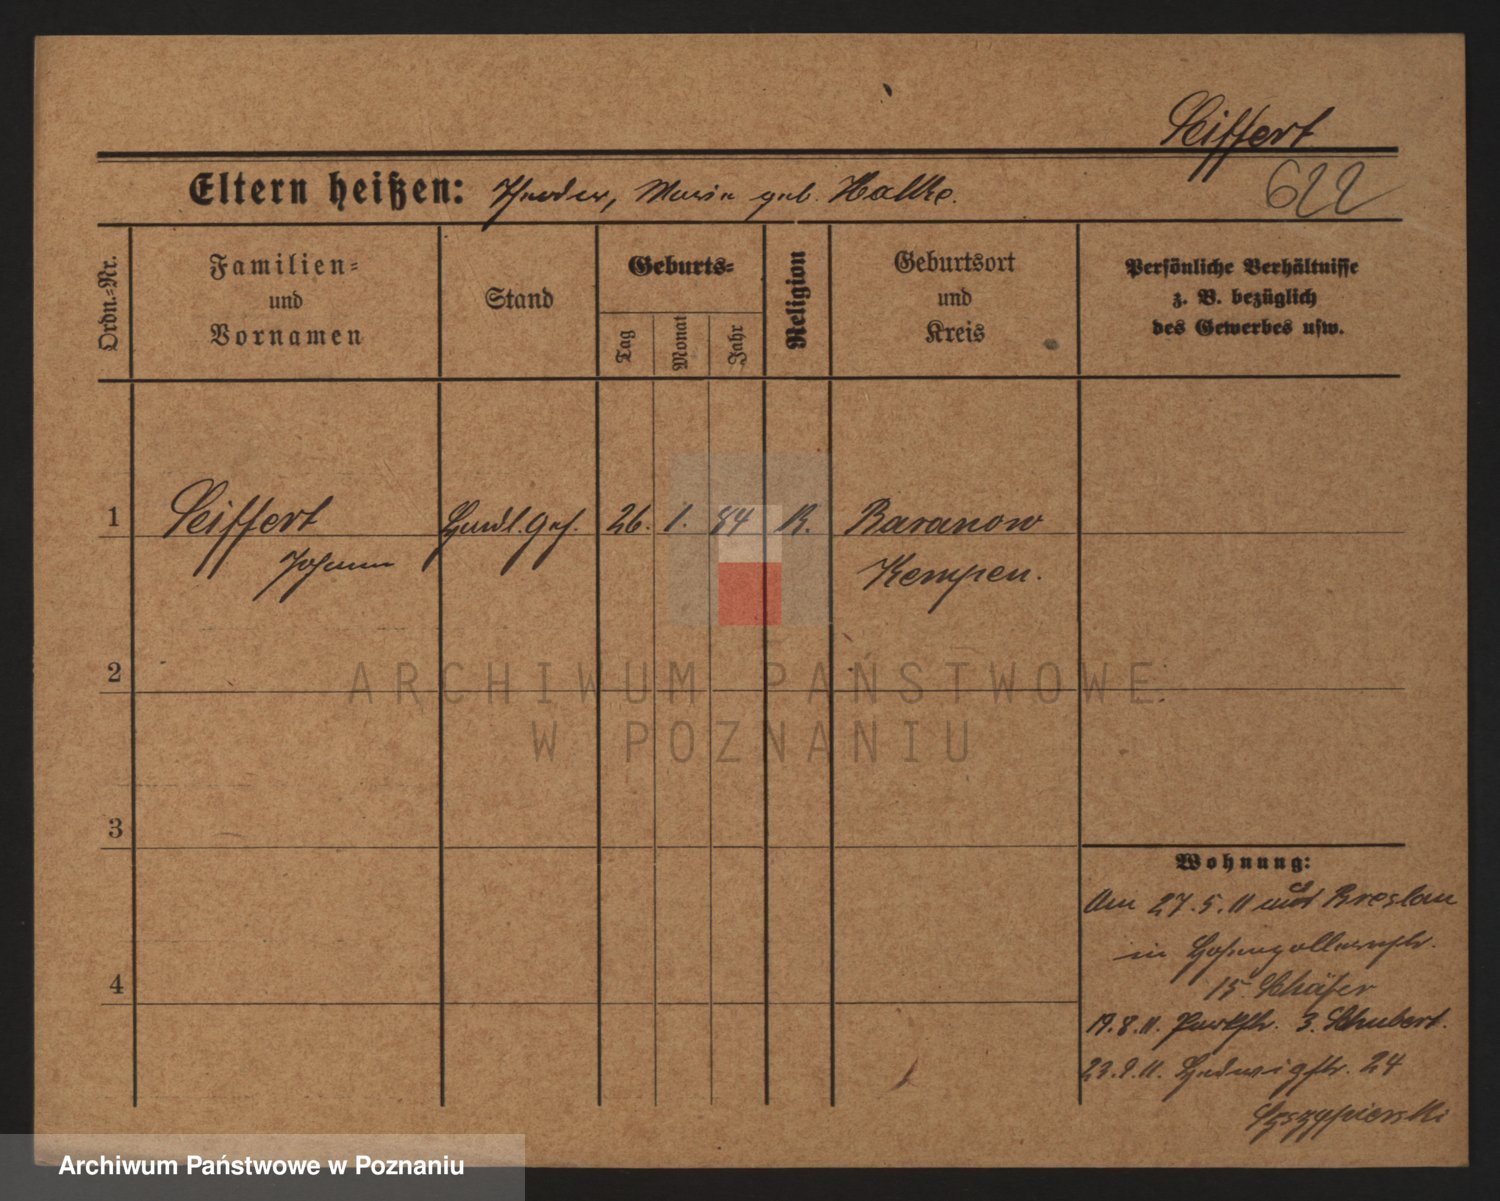 Seiffert
Eltern heißen: Theodor, Marie geb. Halke.
622
Ordn.-Nr.
Familien-
und
Vornamen
Stand
Geburts-
Tag
Monat
Jahr
Religion
Geburtsort
und
Kreis
Persönliche Verhältnisse
z. B. bezüglich
des Gewerbes usw.
1
Seiffert
Johann
Handl. Geh.
26.
1.
84
R.
Baranow
Kempen.
2
ARCHIWUM PAŃSTWOWE
W POZNANIU
3
4
Wohnung:
Am 27.5.11 Breslau
in Hohenzollernstr.
15 Schäfer
19.8.11. Parkstr. 3. Schubert.
23.9.11. Hedwigstr. 24
Archiwum Państwowe w Poznaniu